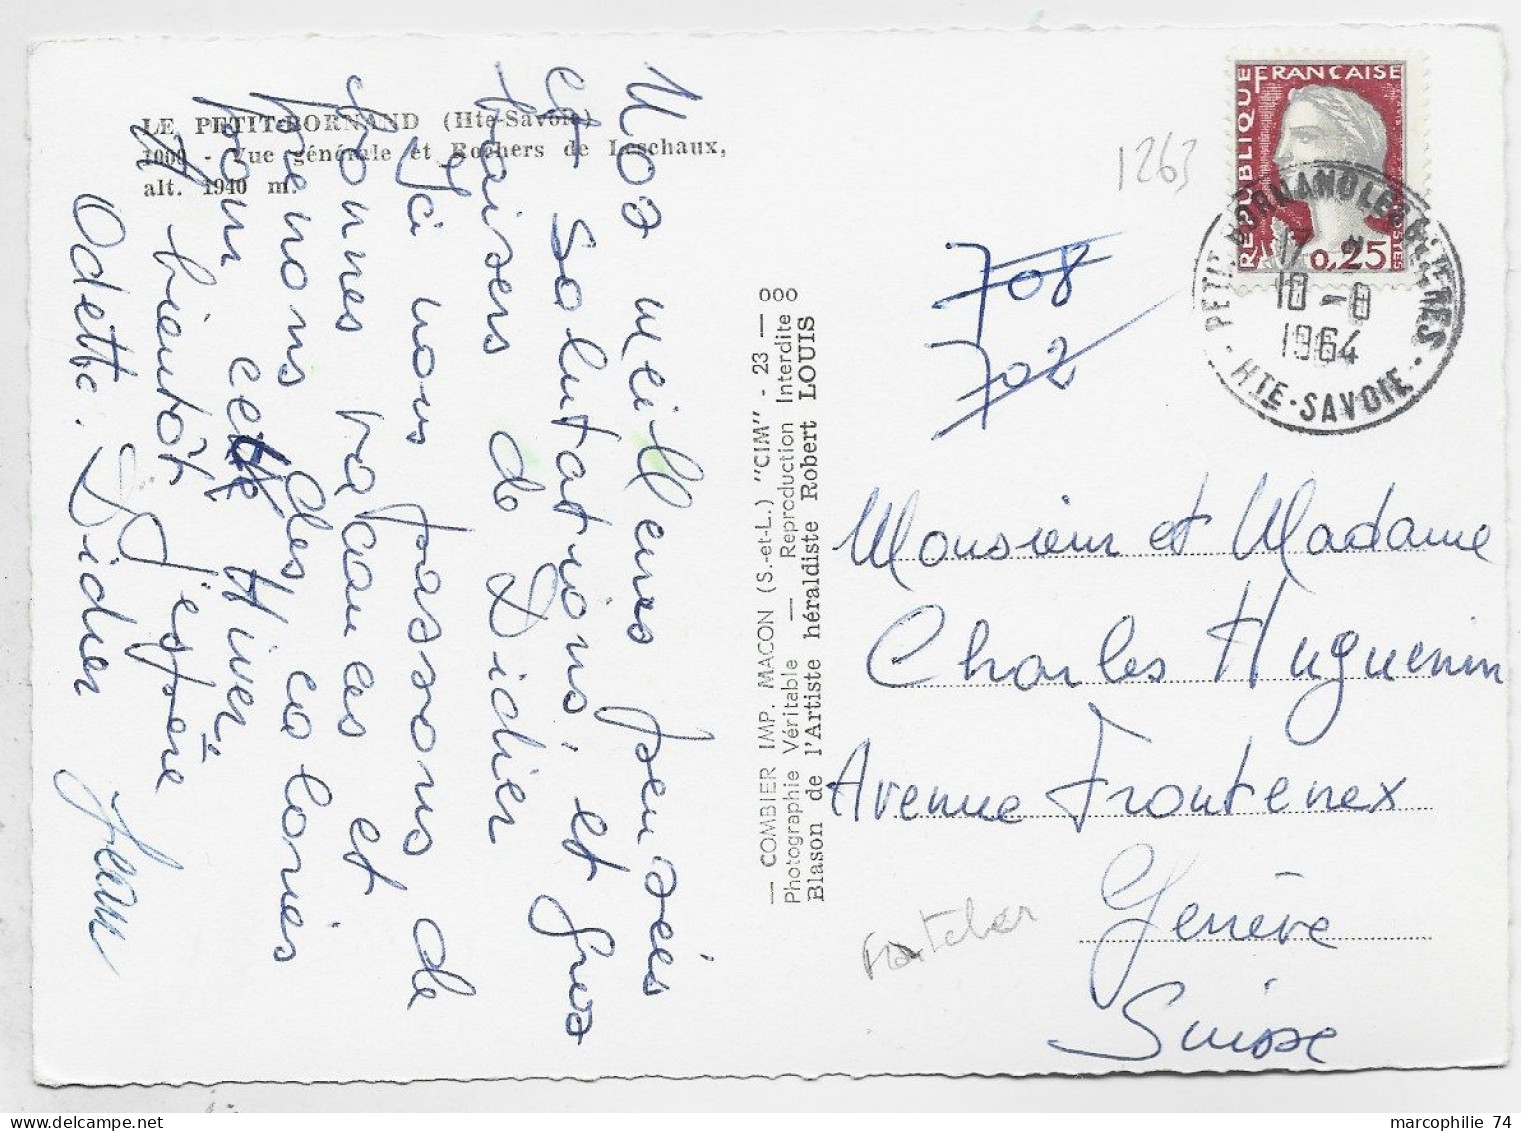 LE PETIT-BORNAND (Hte-Savoie)
1000 - Vue générale et Rochers de Leschaux,
alt. 1940 m.
Nos meilleures pensées
et salutations, et gros
baisers de Didier
Ici nous passons de
bonnes vacances et
prenons des calories
pour cet Hiver.
A bientôt j'espère
Odette. Didier
Jean
— COMBIER IMP. MACON (S.-et-L.) "CIM" - 23 — 000
Photographie Véritable — Reproduction Interdite
Blason de l'Artiste héraldiste Robert LOUIS
REPUBLIQUE FRANCAISE
0,25
POSTES
PETIT BORNAND LES GLIERES
17
10 - 8
1964
- HTE-SAVOIE -
1263
708
702
Monsieur et Madame
Charles Huguenin
Avenue Frontenex
Genève
Suisse
marcophilie 74